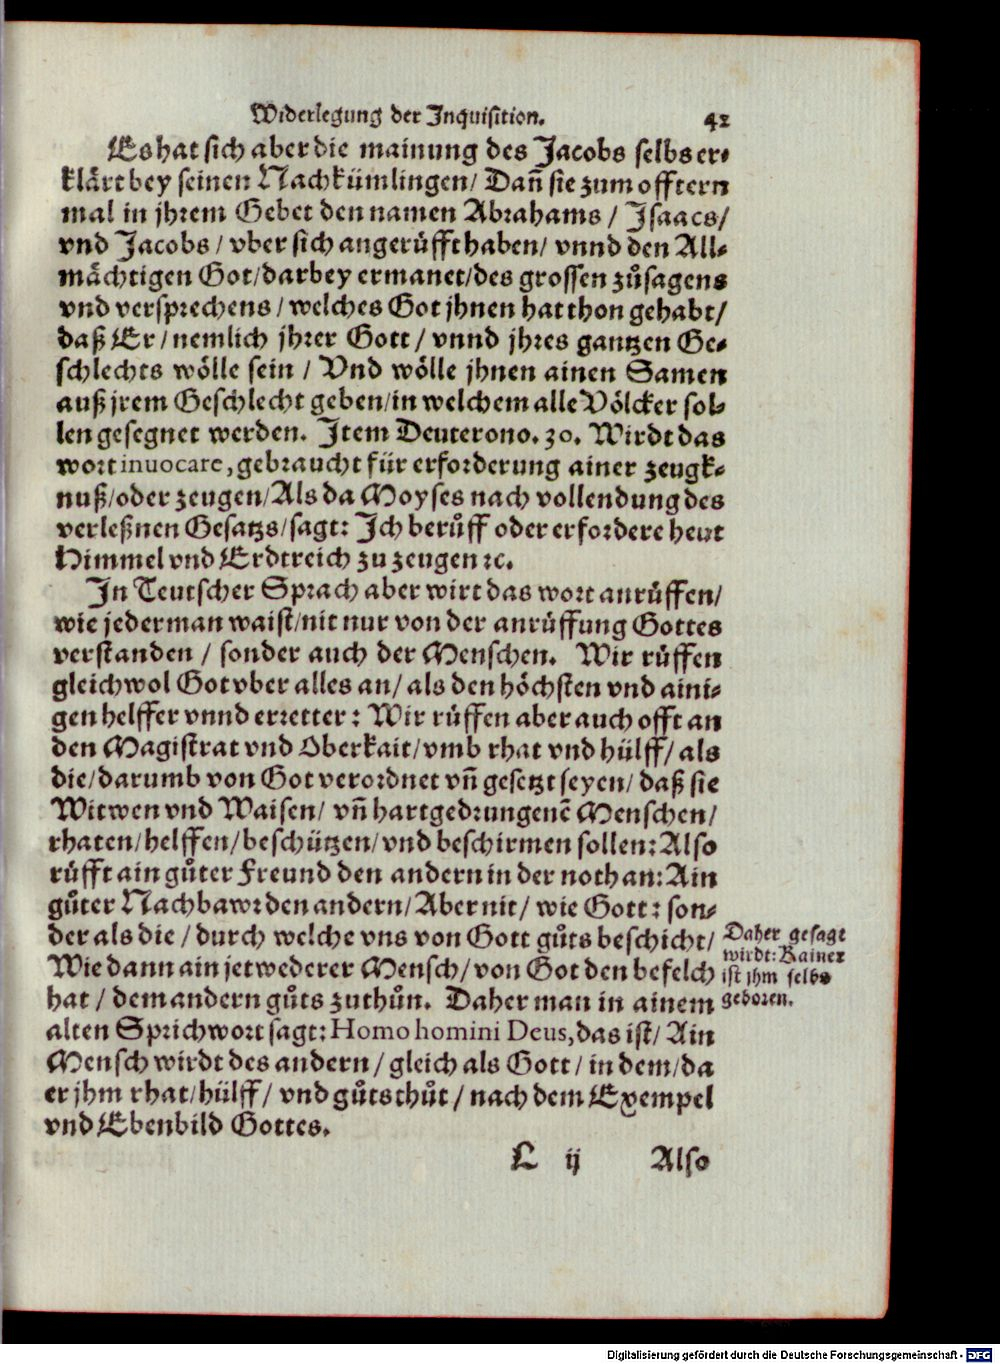 Widerlegung der Inquisition. 42
Es hat sich aber die mainung des Jacobs selbs er⸗
klårt bey seinen Nachkümlingen/ Dañ sie zum offtern
mal in jhrem Gebet den namen Abrahams / Isaacs/
vnd Jacobs / vber sich angerůfft haben/ vnnd den All⸗
mächtigen Got/darbey ermanet/des grossen zůsagens
vnd versprechens / welches Got jhnen hat thon gehabt/
daß Er/ nemlich jhrer Gott / vnnd jhres gantzen Ge⸗
schlechts wölle sein / Vnd wölle jhnen ainen Samen
auß jrem Geschlecht geben/in welchem alle Völcker sol⸗
len gesegnet werden. Item Deuterono. 30. Wirdt das
wort inuocare, gebraucht für erforderung ainer zeugk⸗
nuß/oder zeugen/Als da Moyses nach vollendung des
verleßnen Gesatzs/sagt: Ich berůff oder erfordere heut
Himmel vnd Erdtreich zu zeugen ꝛc.
In Teutscher Sprach aber wirt das wort anrůffen/
wie jederman waist/nit nur von der anrůffung Gottes
verstanden / sonder auch der Menschen. Wir růffen
gleichwol Got vber alles an/ als den höchsten vnd aini⸗
gen helffer vnnd erretter: Wir růffen aber auch offt an
den Magistrat vnd Oberkait/vmb rhat vnd hülff/ als
die/darumb von Got verordnet vñ gesetzt seyen/ daß sie
Witwen vnd Waisen/ vñ hartgedrungenẽ Menschen/
rhaten/helffen/beschützen/vnd beschirmen sollen: Also
růfft ain gůter Freund den andern in der noth an: Ain
gůter Nachbawr den andern/Aber nit/ wie Gott: son⸗
der als die / durch welche vns von Gott gůts beschicht/
Wie dann ain jetwederer Mensch/von Got den befelch
hat / dem andern gůts zuthůn. Daher man in ainem
alten Sprichwort sagt: Homo homini Deus, das ist/ Ain
Mensch wirdt des andern / gleich als Gott / in dem/da
er jhm rhat/hülff/ vnd gůts thůt / nach dem Exempel
vnd Ebenbild Gottes.
Daher gesagt
wirdt: Kainer
ist jhm selbs
geboren.
L ij Also
Digitalisierung gefördert durch die Deutsche Forschungsgemeinschaft - DFG